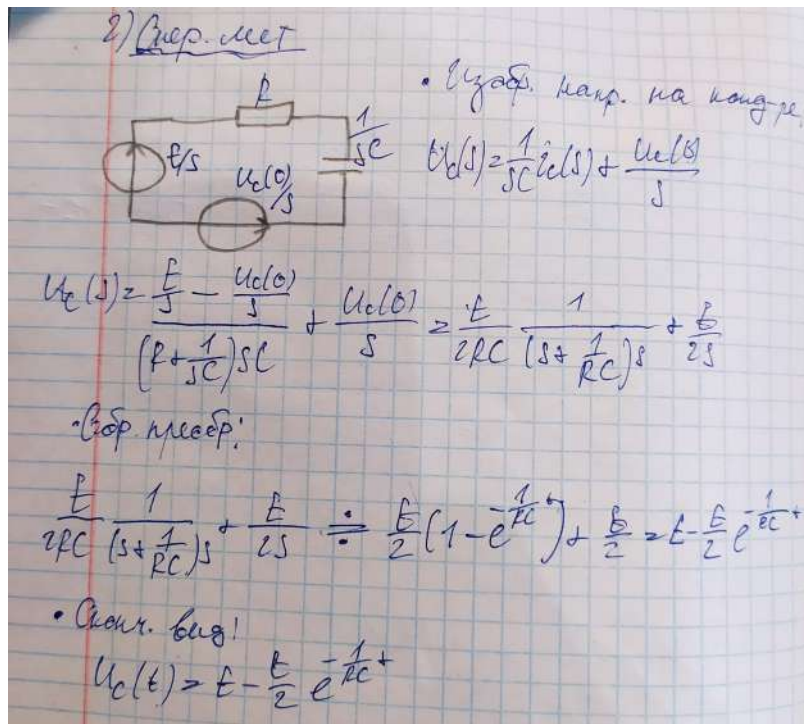 2) Опер. мет
R
E/S
Uc(0)/S
1/SC
• Изобр. напр. на конд-ре
Uc(S) = 1/SC ic(S) + Uc(0)/S
Uc(S) = (E/S - Uc(0)/S)/((R + 1/SC)SC) + Uc(0)/S = E/2RC 1/((S + 1/RC)S) + E/2S
• Обр. преобр:
E/2RC 1/((S + 1/RC)S) + E/2S ≑ E/2 (1 - e^(-1/RC t)) + E/2 = E - E/2 e^(-1/RC t)
• Оконч. вид:
Uc(t) = E - E/2 e^(-1/RC t)